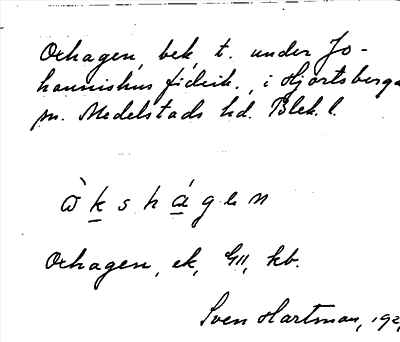 Oxhagen, bek, t. under Jo-
hannishus fideik., i Hjortsberga
sn. Medelstads hd. Blek. l.
ὼkshágen
Oxhagen, ek, GII, kb.
Sven Hartman, 192